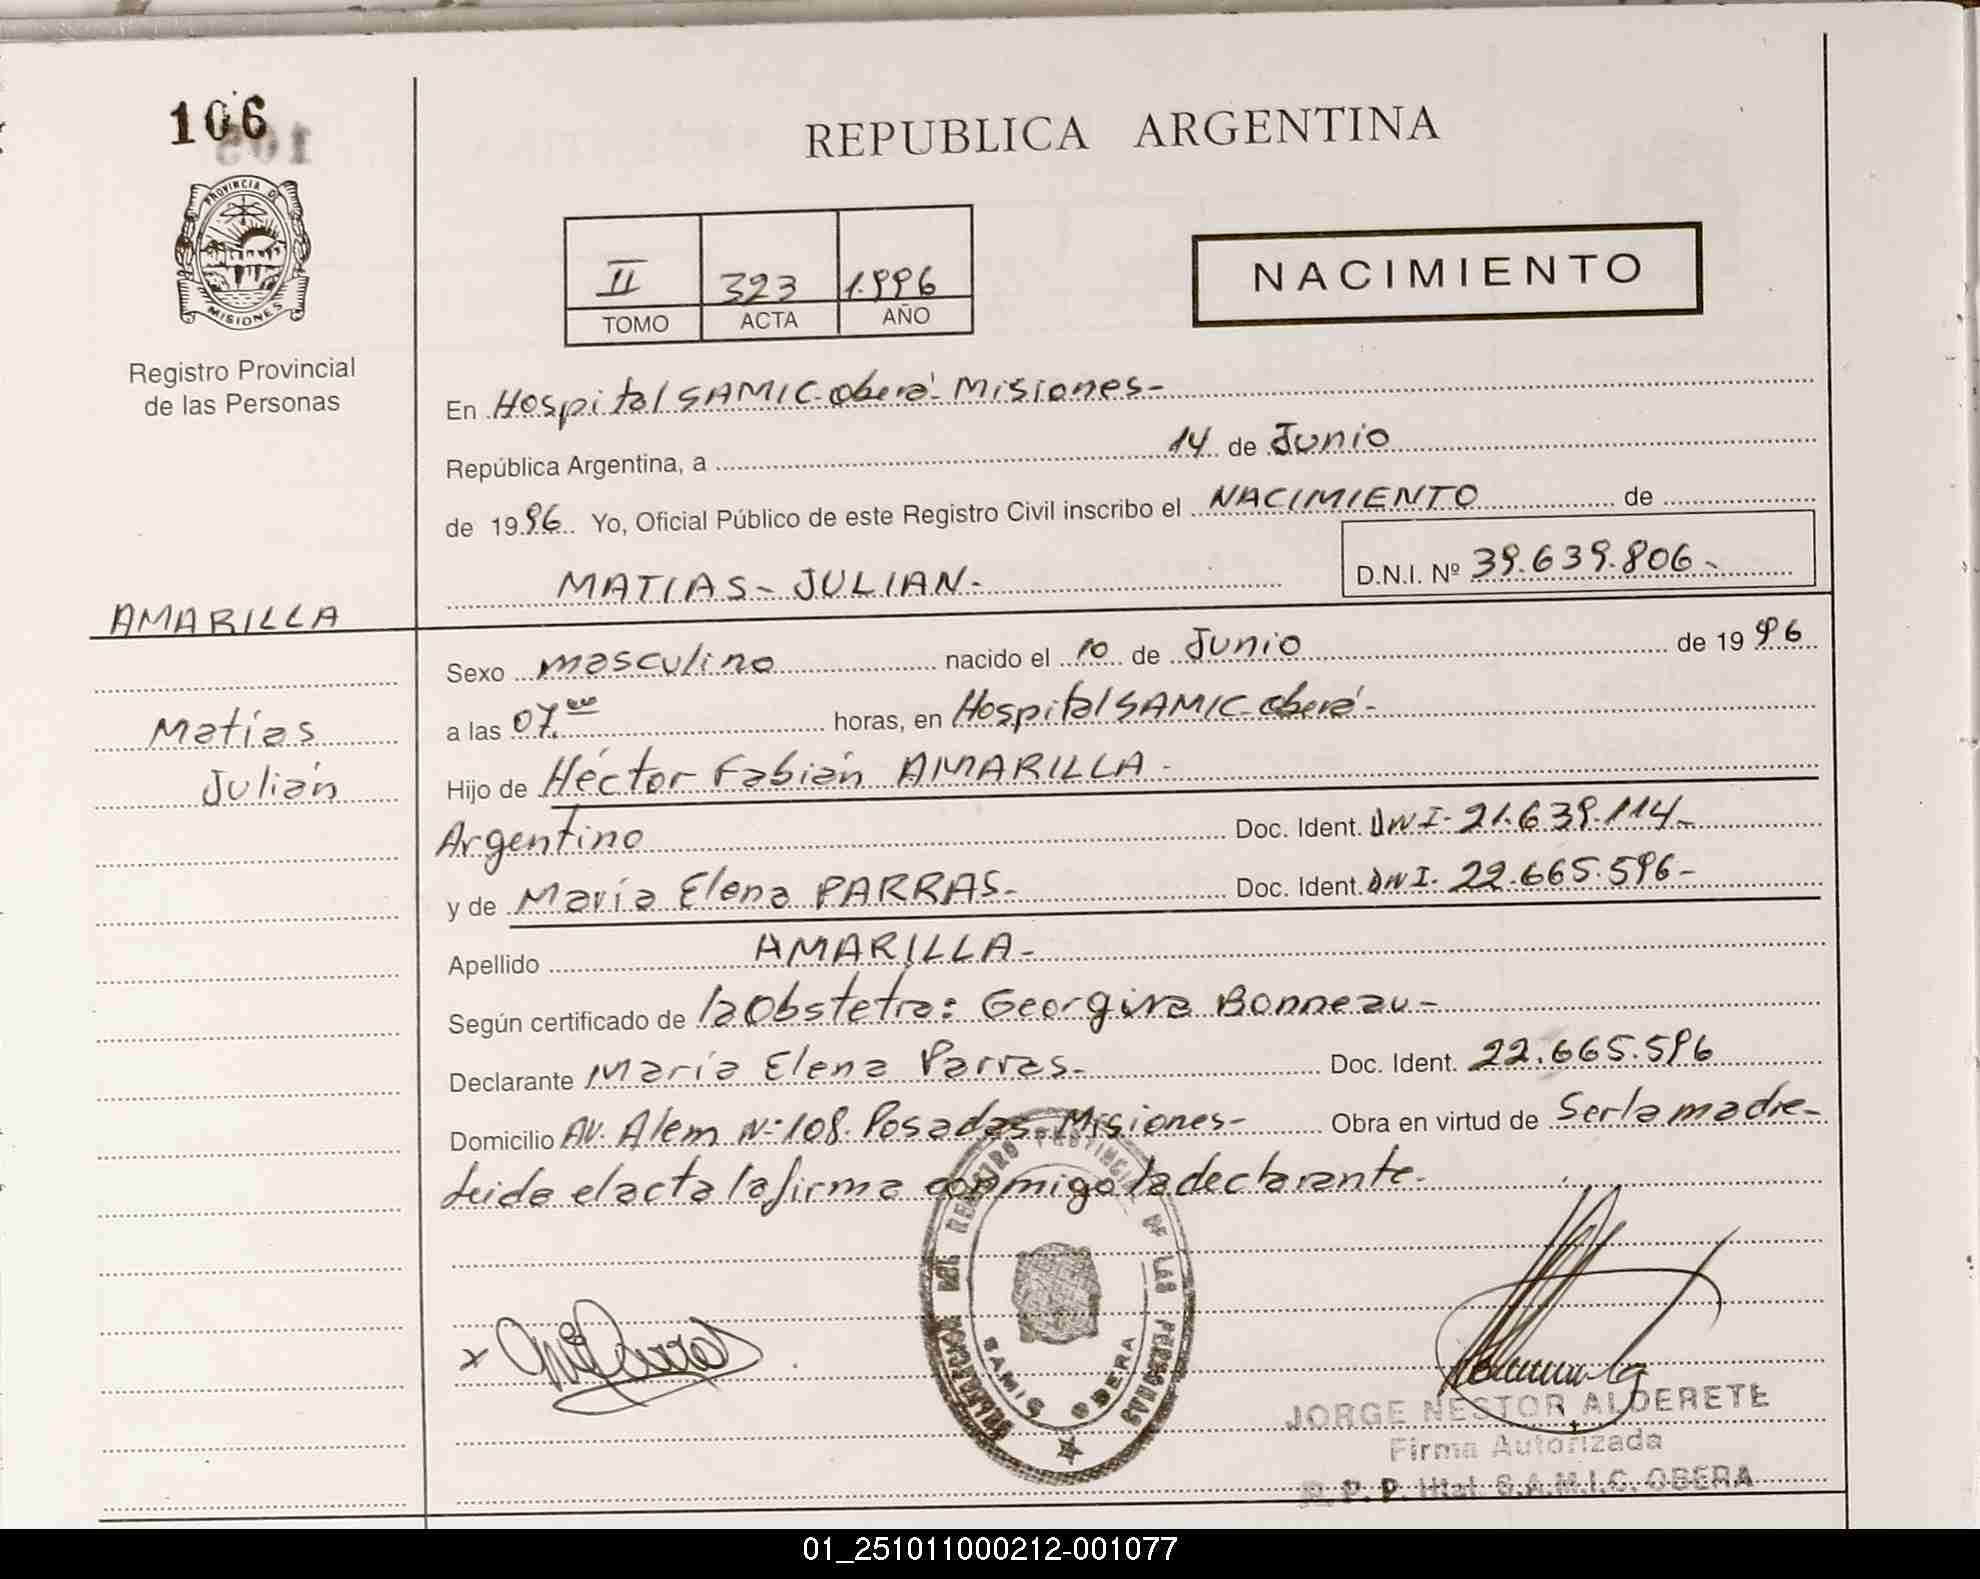 106
REPUBLICA ARGENTINA
PROVINCIA DE
MISIONES
II 323 1.996
TOMO ACTA AÑO
NACIMIENTO
Registro Provincial
de las Personas
En Hospital SAMIC-Oberá-Misiones-
República Argentina, a 14 de Junio
de 1996 Yo, Oficial Público de este Registro Civil inscribo el NACIMIENTO de
MATIAS-JULIAN.-
D.N.I. Nº 39.639.806.-
AMARILLA
Sexo masculino nacido el 10 de Junio de 1996
Matías
a las 07.00 horas, en Hospital SAMIC-Oberá-
Julián
Hijo de Héctor Fabián AMARILLA-
Argentino Doc. Ident. DNI-21.639.114-
y de María Elena PARRAS- Doc. Ident. DNI-22.665.596-
Apellido AMARILLA-
Según certificado de la Obstetra: Georgina Bonneau-
Declarante María Elena Parras- Doc. Ident. 22.665.596
Domicilio AV. Alem Nº 108-Posadas-Misiones- Obra en virtud de Ser la madre-
leida el acta la firma conmigo la declarante.
DELEGACION DEL REGISTRO PROVINCIAL DE LAS PERSONAS
SAMIC OBERA
JORGE NESTOR ALDERETE
Firma Autorizada
R. P. P. Htal. S.A.M.I.C. OBERA
01_251011000212-001077